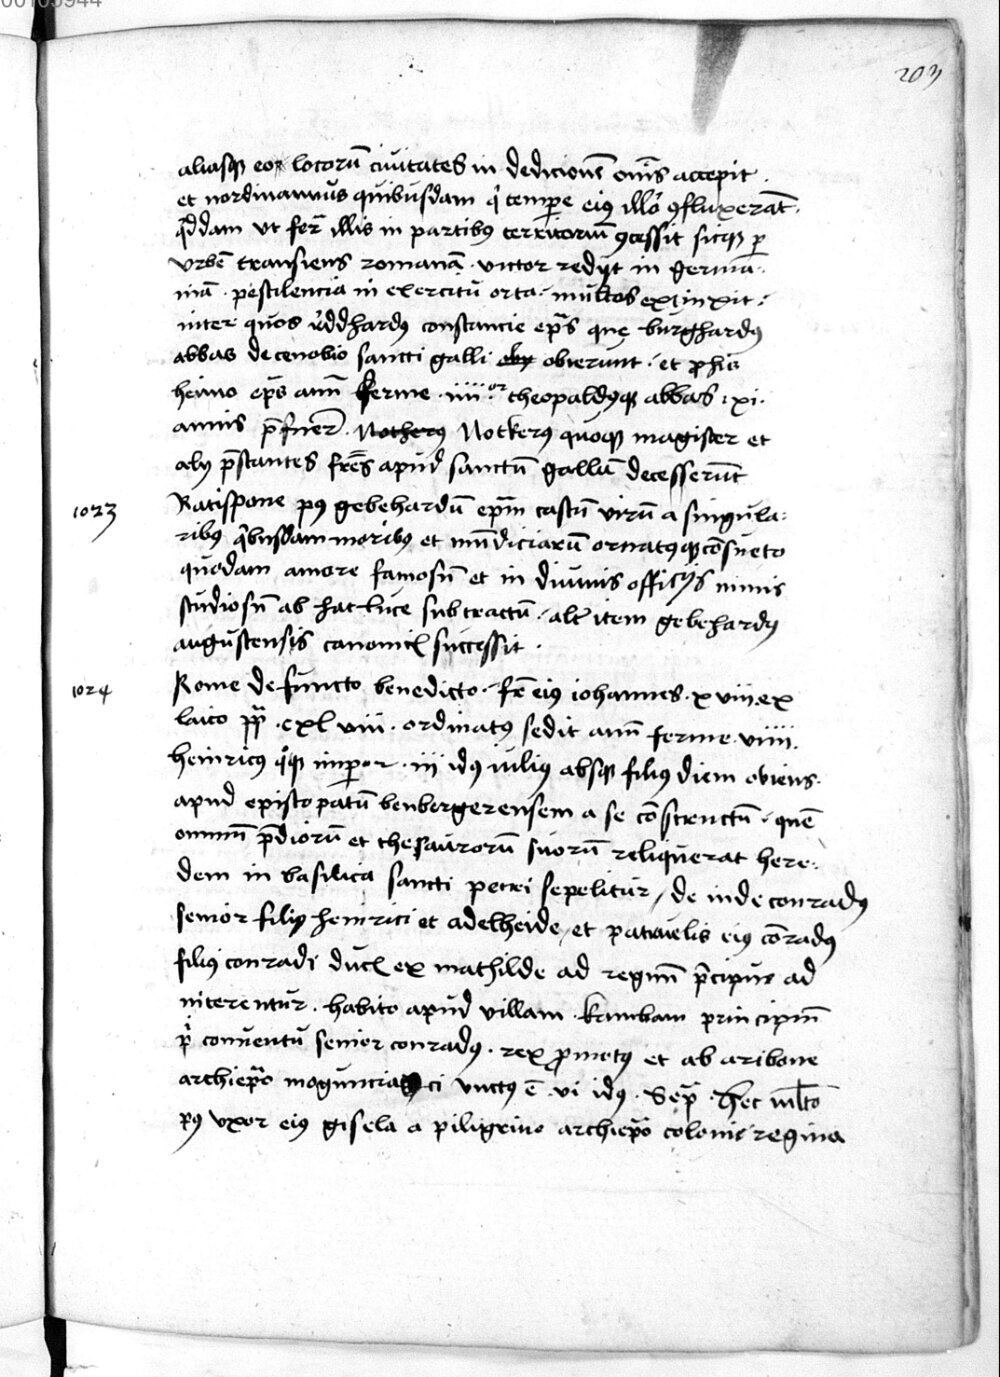 00103944
203
aliasq3 eoꝝ locorū ciuitates in dedicionē om̄is accepit .
et nordmannus quibusdam qͥ tempe eiꝰ illo ꝯfluxerāt .
qddam vt fer̄ illis in partibꝰ territoriū ꝯcessit sicq3 p
vrbē transiens romanā . victor redijt in germa-
niā . pestilencia in exercitu orta . multos extinxit .
inter quos rŭdhardꝰ constancie ep̄s que burghardꝰ
abbas de cenobio sancti galli obierunt . et p his
heimo ep̄s ann̄ ferme . iiii.or theopaldꝰq3 abbas . xi .
annis p̄fuer̄ . Notherꝰ Notkerꝰ quoq3 magister et
alij p̄stantes fr̄es apud sanctū gallū decesserūt
1023 Ratispone pꝰ gebehardū ep̄m castū virū a singula-
ribꝰ qͥbusdam moribꝰ et mūdiciarū ornatꝰ q3 cōsueto
quodam amore famosū et in diuinis officijs nimis
studiosū ab hac luce subtractū . alt̄ item gebehardꝰ
augustensis canonicꝰ successit .
1024 Rome defuncto benedicto . fr̄ eiꝰ iohannes . xviii . ex
laico pp̄ . cxlviii . ordinatꝰ sedit ann̄ ferme . viiii .
heinricꝰ qͦq3 imp̄or . iii idꝰ iulij absq3 filijs diem obiens .
apud episcopatū benbergerensem a se cōstructū . quē
omniū p̄diorū et thesaurorū suorū reliquerat here-
dem in basilica sancti petri sepelitur / de inde conradꝰ
senior filiꝰ heinrici et adelheide / et patruelis eiꝰ cōradꝰ
filiꝰ conradi ducꝭ ex mathilde ad regnū p̄cipue ad
niterentur . habito apud villam . kambam principiū
pͥ conuentu senior conradꝰ . rex p̱motꝰ et ab aribone
archiep̄o mogunciaci vnctꝰ ē . vi idꝰ . Sep̄ . Hec īubto
pꝰ vxor eiꝰ gisela a piligrino archiep̄o colonie regina